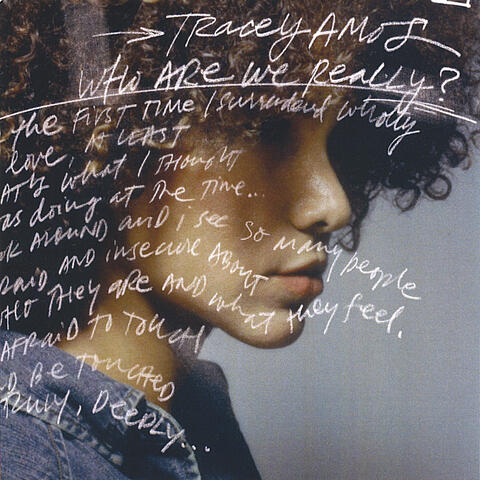 → TRACEY AMOS
WHO ARE we Really?
the FIRST TIME I surrendered wholly
love, AT LEAST
AT'S what I THOUGHT
as doing AT the Time...
ok Around and I see so many people
RAID AND insecure ABOUT
HO They ARE AND what they feel.
AFRAID TO TOUCH
D BE TOUCHED
TRULY, DEEPLY...